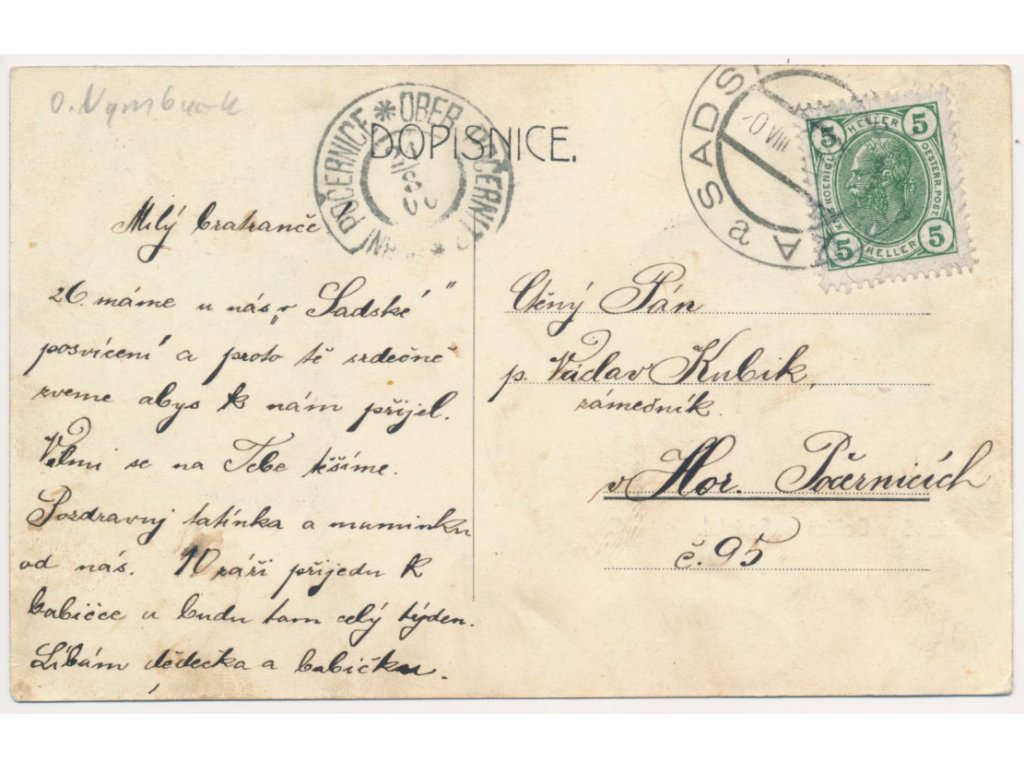 DOPISNICE.
OBER POČERNI
POČERNICE
a SADS
VIII
5 HELLER 5
OESTERR. POST
5 HELLER 5
Milý bratranče
26. máme u nás „v Sadské“
posvícení a proto tě srdečně
zveme abys k nám přijel.
Velmi se na Tebe těšíme.
Pozdravuj tatínka a maminku
od nás. 10 září přijedu k
babičce a budu tam celý týden.
Líbám dědečka a babičku.
Ctěný Pán
p. Václav Kubik,
zámečník.
v Hor. Počernicích
č. 95